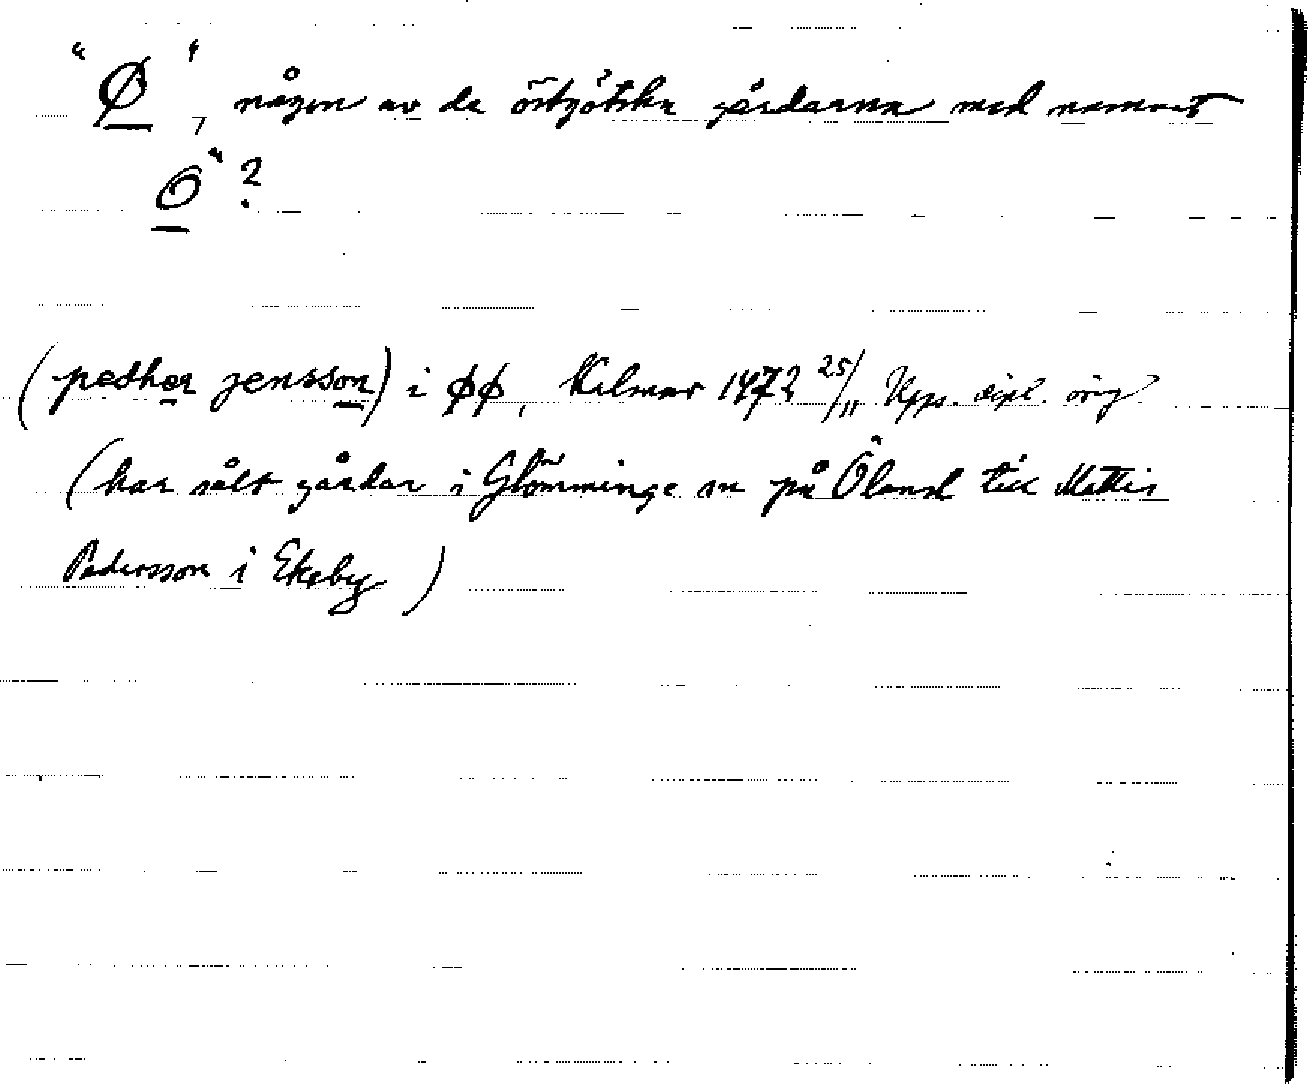 "Ø", någon av de östgötska gårdarna med namnet
Ö"?
(pedher jensson) i øø, Kalmar 1472 25/11 Upps. dipl. orig
(har sålt gårdar i Glömminge sn på Öland till Mattis
Pedersson i Ekeby)